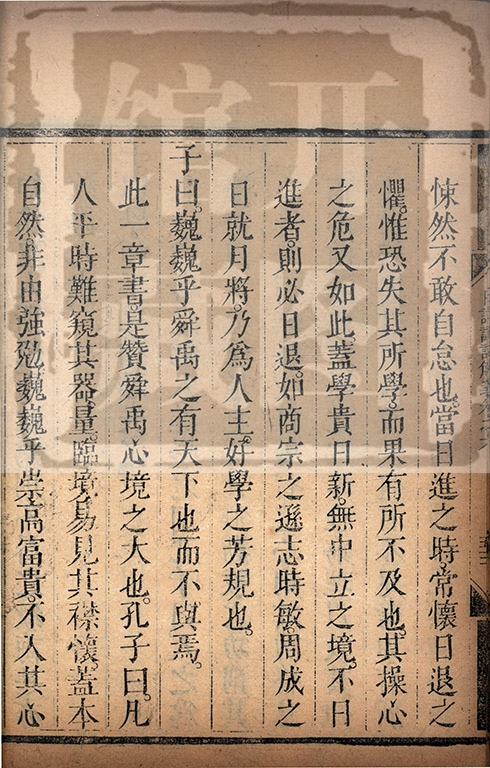 悚然不敢自怠也。當日進之時。常懷日退之
懼。惟恐失其所學。而果有所不及也。其操心
之危又如此。蓋學貴日新。無中立之境。不日
進者。則必日退。如商宗之遜志時敏周成之
日就月將。乃爲人主。好學之芳規也。
子曰。巍巍乎舜禹之有天下也而不與焉。
此一章書是贊舜禹心境之大也。孔子曰。凡
人平時難窺其器量。臨境易見其襟懷。蓋本
自然。非由強勉。巍巍乎崇高富貴。不入其心